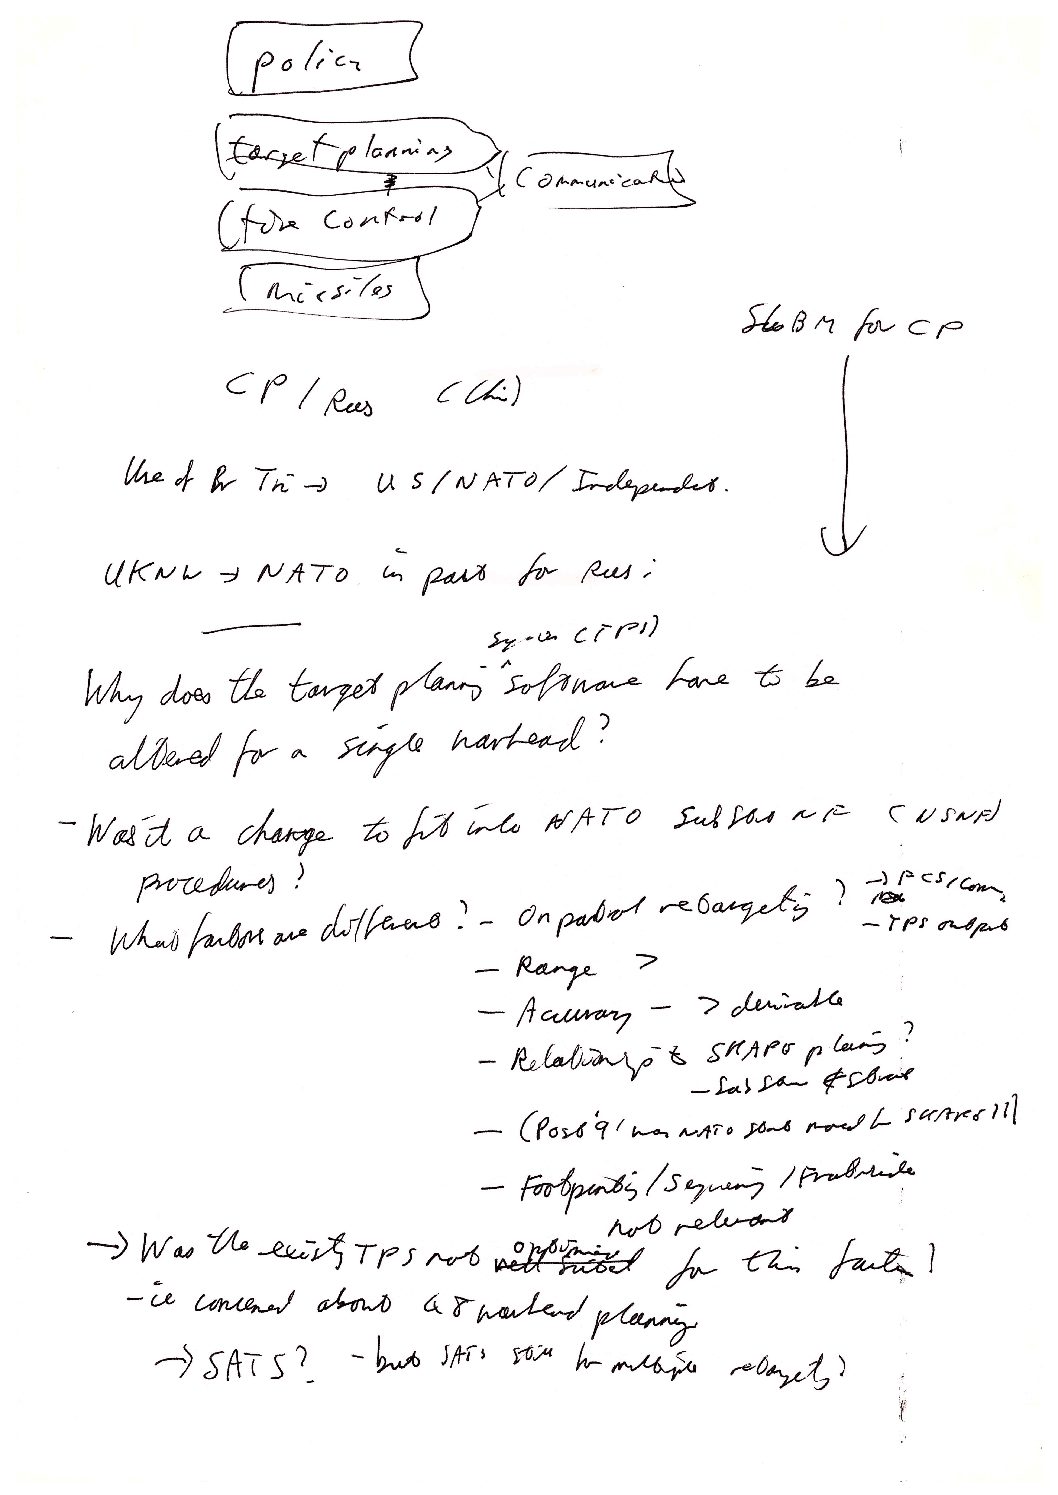 policy
target planning
Communicat
fire control
missiles
BM for CP
CP / Rus (Chi)
Use of Br Tri → US/NATO/Independet.
UKNW → NATO in part for Rus:
System (TPS)
Why does the target planning software have to be
altered for a single warhead?
- Was it a change to fit into NATO Substra NF (NSNF)
procedures?
- What factors are different? - On patrol retargeting? → FCS/Comm
- TPS output
- Range >
- Accuracy - > desirable
- Relationship to SHAPE planning?
- Sub stra &
- (Post '91 was NATO moved to SHAPE??)
- Footprinting/Sequencing/Fratricide
not relevant
→ Was the existing TPS not optimised for this factor?
- ie concerned about 4-8 warhead planning
→ SATS? - but SATS still for multiple retargets?